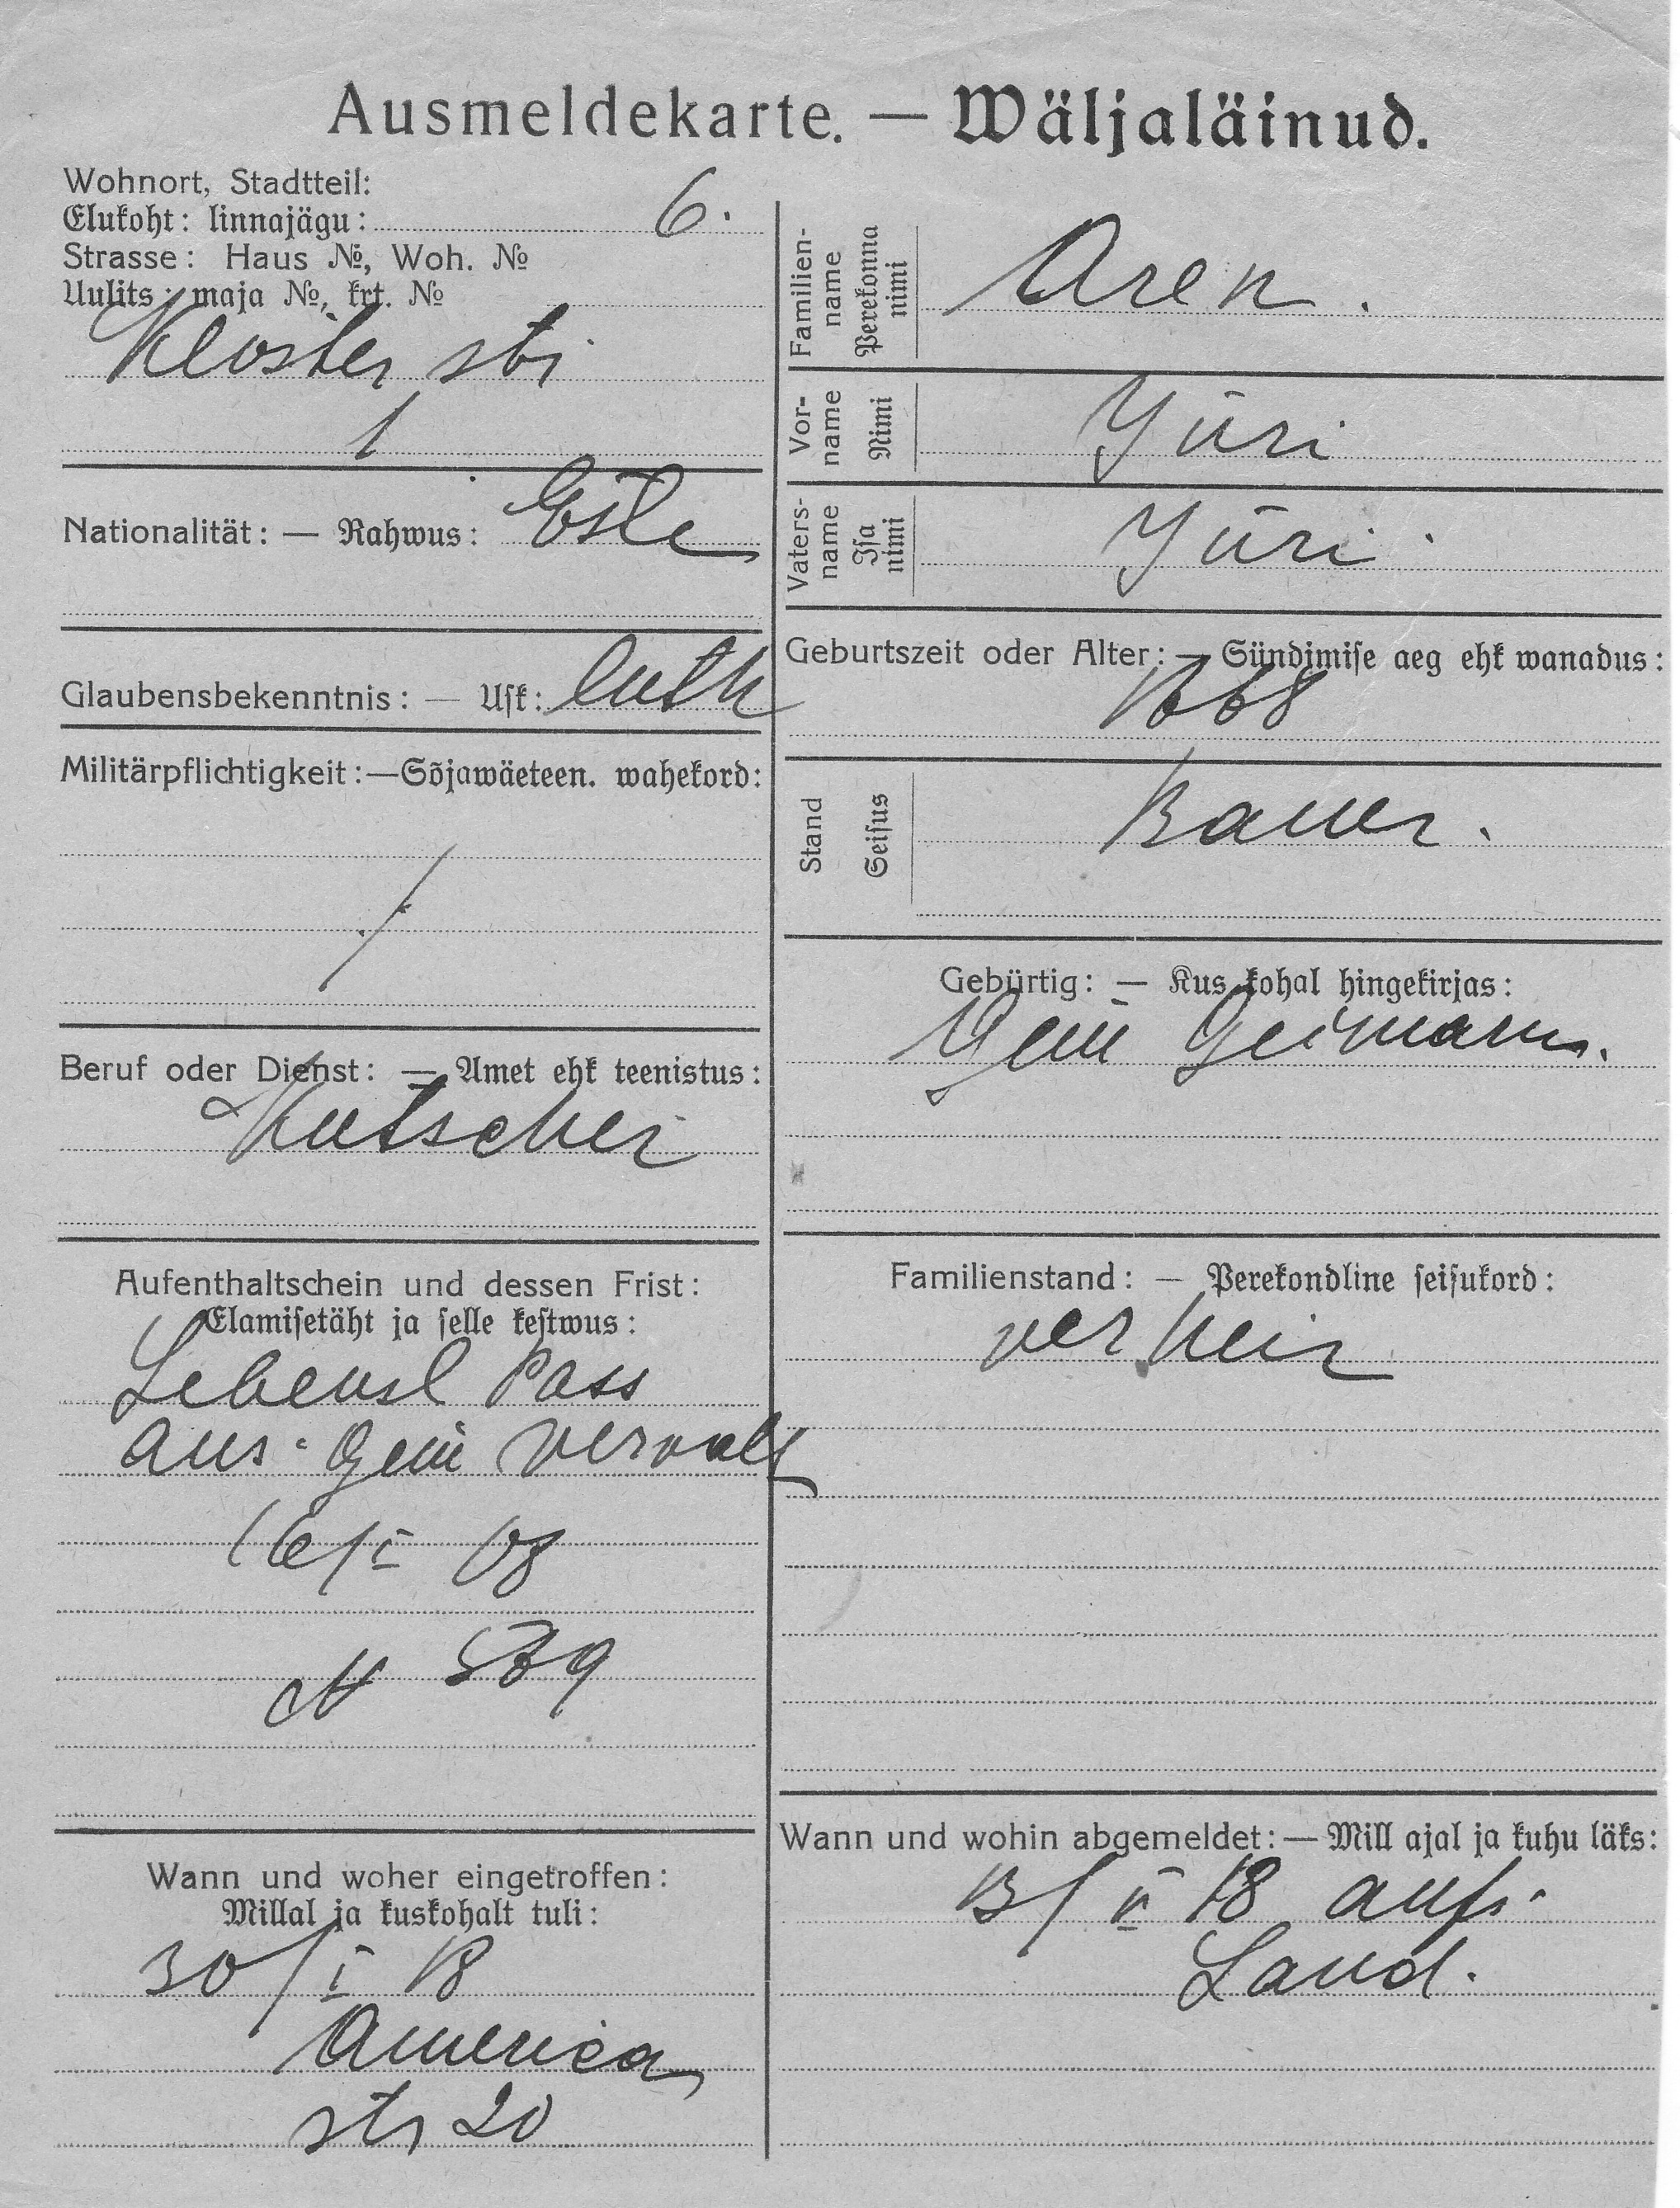 Ausmeldekarte. — Wäljaläinud.
Wohnort, Stadtteil:
Elukoht: linnajägu: 6.
Strasse: Haus №, Woh. №
Uulits: maja №, krt. №
Kloster str
1
Nationalität: — Rahwus: Este
Glaubensbekenntnis: — Usk: luth
Militärpflichtigkeit:—Sõjawäeteen. wahekord:
/
Beruf oder Dienst: — Amet ehk teenistus:
Kutscher
Aufenthaltschein und dessen Frist:
Elamisetäht ja selle kestwus:
Lebensl Pass
aus Gem
16/I 08
№
Wann und woher eingetroffen:
Millal ja kuskohalt tuli:
30/I 18
America
str 20
Familien-
name
Perekonna
nimi
Aren.
Vor-
name
Nimi
Jüri
Vaters-
name
Isa
nimi
Jüri
Geburtszeit oder Alter: — Sündimise aeg ehk wanadus:
1868
Stand
Seisus
Bauer.
Gebürtig: — Kus kohal hingekirjas:
Gem
Familienstand: — Perekondline seisukord:
verheir
Wann und wohin abgemeldet: — Mill ajal ja kuhu läks:
13/II 18 aufs
Land.